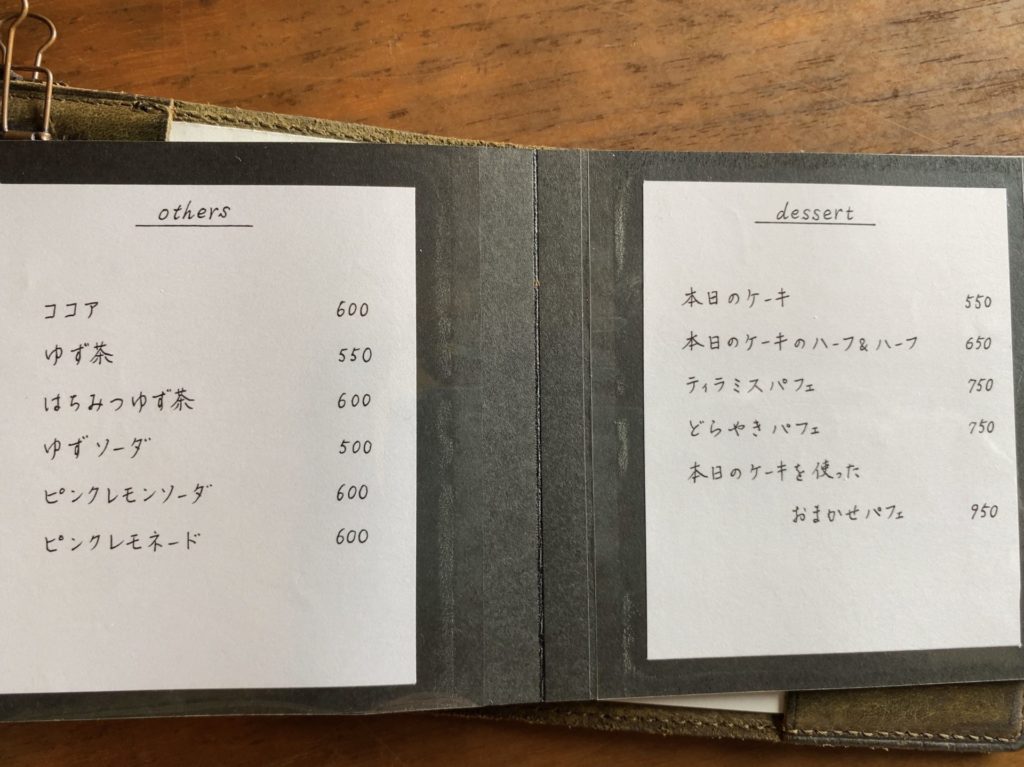 others
ココア 600
ゆず茶 550
はちみつゆず茶 600
ゆずソーダ 500
ピンクレモンソーダ 600
ピンクレモネード 600
dessert
本日のケーキ 550
本日のケーキのハーフ&ハーフ 650
ティラミスパフェ 750
どらやきパフェ 750
本日のケーキを使った
おまかせパフェ 950